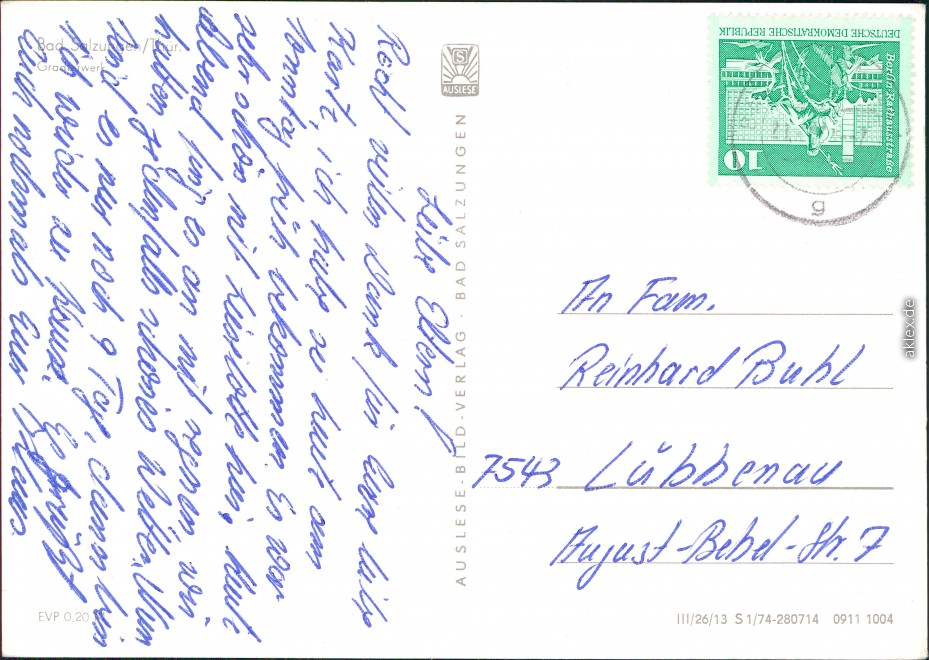 Bad Salzungen/Thür.
Gradierwerk
AUSLESE
AUSLESE-BILD-VERLAG · BAD SALZUNGEN
Liebe Eltern!
Recht vielen Dank für eure liebe
Karte, ich habe sie heute am
Montag früh bekommen. Es war
sehr schön mit hier. Heute
abend fing es an mit regnen wir
haben jedenfalls schönes Wetter. Nun
sind es nur noch 9 Tage, dann bin
ich wieder zu Hause. Es grüßt
euch nochmals euer
DEUTSCHE DEMOKRATISCHE REPUBLIK
Berlin-Rathausstraße
10
g
An Fam.
Reinhard Buhl
7543 Lübbenau
August-Bebel-Str. 7
EVP 0,20
III/26/13 S 1/74-280714 0911 1004
aklex.de